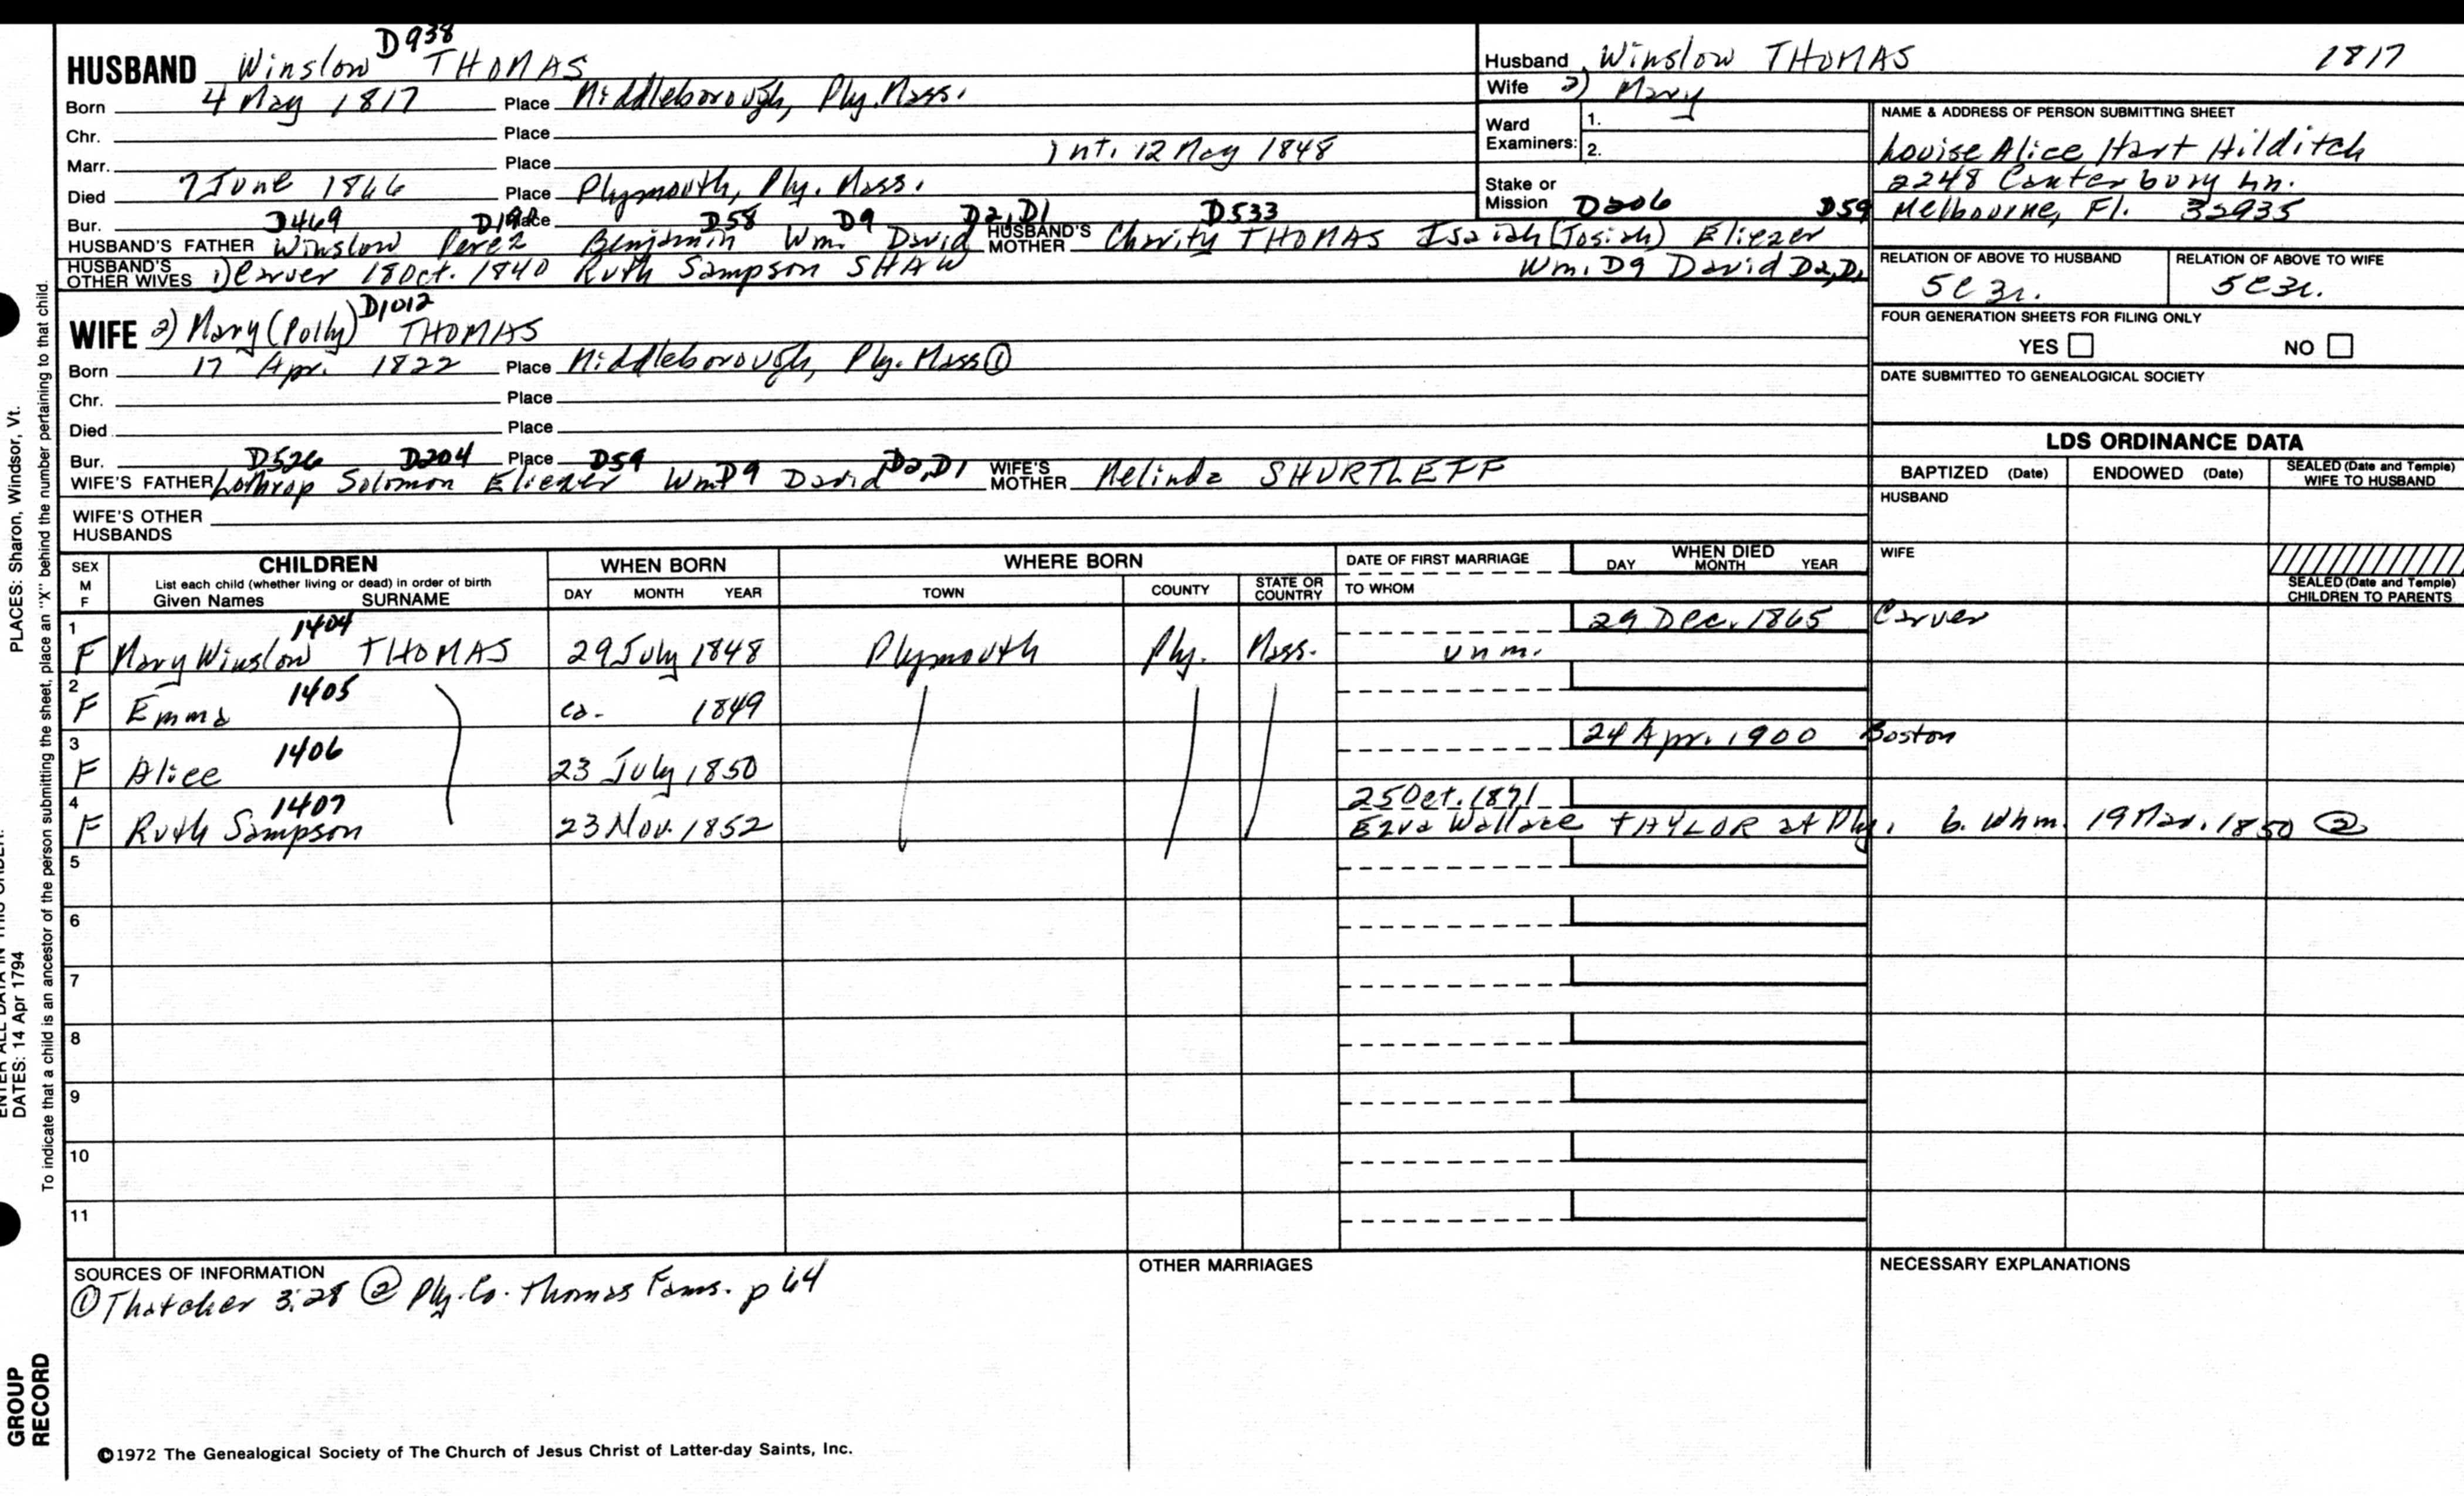 D938
HUSBAND Winslow THOMAS
Born 4 May 1817 Place Middleborough, Ply. Mass.
Chr. Place
Marr. Place Int. 12 May 1848
Died 7 June 1866 Place Plymouth, Ply. Mass.
Bur. D469 Place D58 D9 D2, D1 D533
HUSBAND'S FATHER Winslow Perez Benjamin Wm. David HUSBAND'S MOTHER Charity THOMAS Isaiah (Josiah) Eliezer
HUSBAND'S OTHER WIVES 1) Carver 18 Oct. 1840 Ruth Sampson SHAW Wm. D9 David D2, D1
Husband Winslow THOMAS 1817
Wife 2) Mary
Ward Examiners: 1.
2.
Stake or Mission D206 D59
NAME & ADDRESS OF PERSON SUBMITTING SHEET
Louise Alice Hart Hilditch
2248 Canterbury Ln.
Melbourne, Fl. 32935
RELATION OF ABOVE TO HUSBAND RELATION OF ABOVE TO WIFE
5C3r. 5C3r.
FOUR GENERATION SHEETS FOR FILING ONLY
YES NO
DATE SUBMITTED TO GENEALOGICAL SOCIETY
D1012
WIFE 2) Mary (Polly) THOMAS
Born 17 Apr. 1822 Place Middleborough, Ply. Mass ①
Chr. Place
Died Place
Bur. D526 D204 Place D59 D2, D1
WIFE'S FATHER Lothrop Solomon Eliezer Wm D9 David WIFE'S MOTHER Melinda SHURTLEFF
WIFE'S OTHER HUSBANDS
LDS ORDINANCE DATA
BAPTIZED (Date) ENDOWED (Date) SEALED (Date and Temple) WIFE TO HUSBAND
HUSBAND
WIFE
SEALED (Date and Temple) CHILDREN TO PARENTS
SEX M F CHILDREN WHEN BORN WHERE BORN DATE OF FIRST MARRIAGE WHEN DIED
List each child (whether living or dead) in order of birth
Given Names SURNAME DAY MONTH YEAR TOWN COUNTY STATE OR COUNTRY TO WHOM DAY MONTH YEAR
1 1404 29 Dec. 1865 Carver
F Mary Winslow THOMAS 29 July 1848 Plymouth Ply. Mass. unm.
2 1405
F Emma ca. 1849
3 1406 24 Apr. 1900 Boston
F Alice 23 July 1850
4 1407 25 Oct. 1871
F Ruth Sampson 23 Nov. 1852 Ezra Wallace TAYLOR at Ply. b. Whm. 19 Mar. 1850 ②
5
6
7
8
9
10
11
SOURCES OF INFORMATION OTHER MARRIAGES NECESSARY EXPLANATIONS
① Thatcher 3:28 ② Ply. Co. Thomas Fams. p 64
©1972 The Genealogical Society of The Church of Jesus Christ of Latter-day Saints, Inc.
PLACES: Sharon, Windsor, Vt.
DATES: 14 Apr 1794
To indicate that a child is an ancestor of the person submitting the sheet, place an "X" behind the number pertaining to that child.
GROUP
RECORD